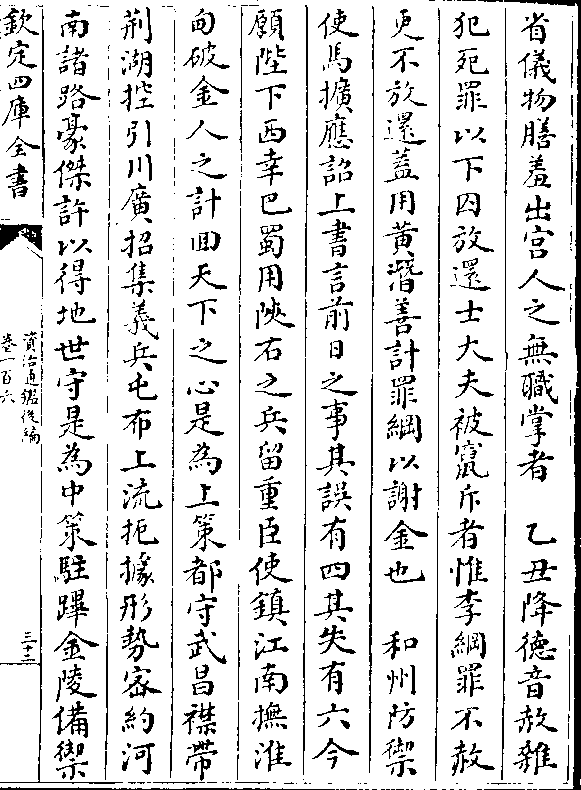 省儀物膳羞出宫人之無職掌者　乙丑降德音赦雜
犯死罪以下囚放還士大夫被竄斥者惟李綱罪不赦
更不放還蓋用黄潛善計罪綱以謝金也　和州防禦
使馬擴應詔上書言前日之事其誤有四其失有六今
願陛下西幸巴蜀用陜右之兵留重臣使鎮江南撫淮
甸破金人之計回天下之心是為上策都守武昌襟帶
荆湖控引川廣招集義兵屯布上流扼據形勢密約河
南諸路豪傑許以得地世守是為中策駐蹕金陵備禦
欽定四庫全書
資治通鑑後編
卷一百六
三十二